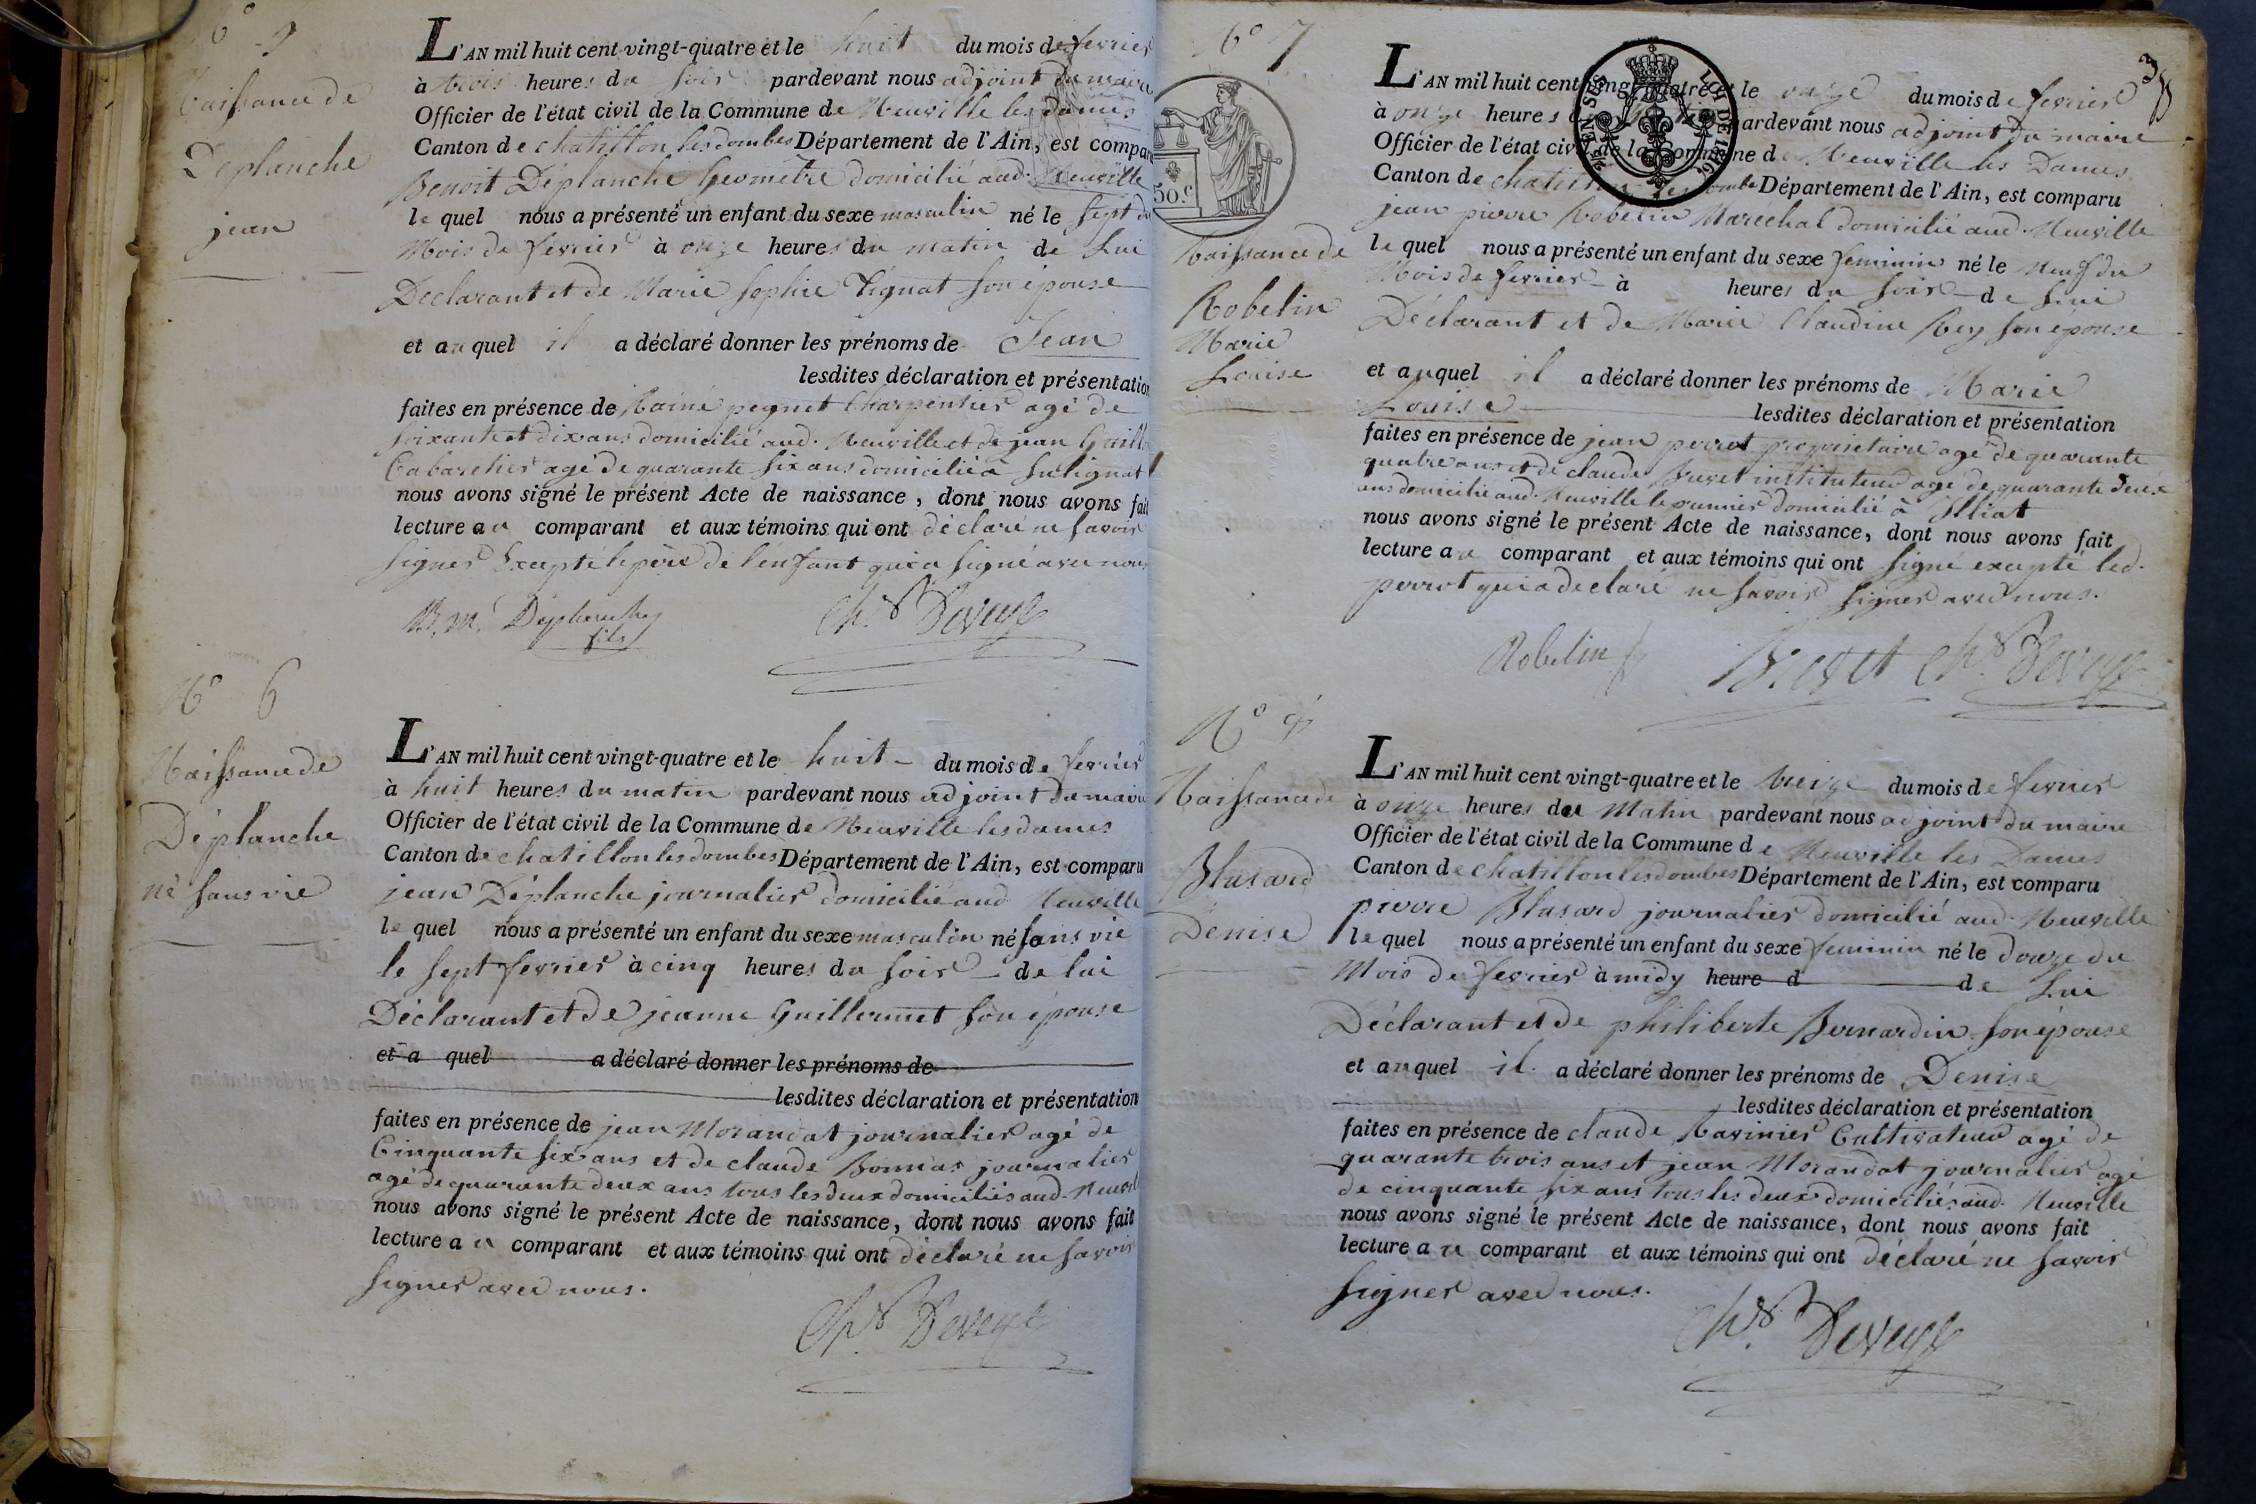 Naissance de
Déplanche
jean
L'AN mil huit cent vingt-quatre et le huit du mois de fevrier
à trois heures du soir pardevant nous adjoint du maire
Officier de l'état civil de la Commune de Neuville les dames
Canton de chatillon les dombes Département de l'Ain, est compar
Benoit Déplanche Géomètre domicilié aud. Neuville
le quel nous a présenté un enfant du sexe masculin né le sept du
Mois de fevrier à onze heures du matin de Lui
Déclarant et de Marie Sophie son épouse
et au quel il a déclaré donner les prénoms de Jean
lesdites déclaration et présentation
faites en présence de Charpentier agé de
soixante et dix ans domicilié aud. Neuville et de jean
Cabaretier agé de quarante six ans domicilié à Sulignat
nous avons signé le présent Acte de naissance, dont nous avons fait
lecture au comparant et aux témoins qui ont déclaré ne savoir
signer Excepté le père de l'enfant qui a signé avec nous
B. M. Déplanche
fils
N° 6
Naissance de
Déplanche
né sans vie
L'AN mil huit cent vingt-quatre et le huit du mois de fevrier
à huit heures du matin pardevant nous adjoint du maire
Officier de l'état civil de la Commune de Neuville les dames
Canton de chatillon les dombes Département de l'Ain, est comparu
jean Déplanche journalier domicilié aud Neuville
le quel nous a présenté un enfant du sexe masculin né sans vie
le sept fevrier à cinq heures du soir de lui
Déclarant et de jeanne Guillermet son épouse
et a quel a déclaré donner les prénoms de
lesdites déclaration et présentation
faites en présence de jean Morandat journalier agé de
Cinquante six ans et de claude journalier
agé de quarante deux ans tous les deux domiciliés aud. Neuvil
nous avons signé le présent Acte de naissance, dont nous avons fait
lecture au comparant et aux témoins qui ont déclaré ne savoir
signer avec nous.
N° 7
50 c
Naissance de
Robelin
Marie
Louise
L'AN mil huit cent vingt-quatre et le onze du mois de fevrier
à onze heures pardevant nous adjoint du maire
Officier de l'état civil de la Commune de Neuville les Dames
Canton de chatillon les dombes Département de l'Ain, est comparu
jean pierre Robelin Marechal domicilié aud. Neuville
le quel nous a présenté un enfant du sexe feminin né le Neuf du
Mois de fevrier à heures du soir de Lui
Déclarant et de Marie Claudine Rey son épouse
et au quel il a déclaré donner les prénoms de Marie
Louise lesdites déclaration et présentation
faites en présence de jean perrot proprietaire agé de quarante
quatre ans et de claude instituteur agé de quarante deux
ans domicilié aud. Neuville le premier domicilié à Illiat
nous avons signé le présent Acte de naissance, dont nous avons fait
lecture au comparant et aux témoins qui ont signé excepté led.
perrot qui a declaré ne savoir signer avec nous.
Robelin
Naissance de
Blusard
Denise
L'AN mil huit cent vingt-quatre et le treize du mois de fevrier
à onze heures du Matin pardevant nous adjoint du maire
Officier de l'état civil de la Commune de Neuville les Dames
Canton de chatillon les dombes Département de l'Ain, est comparu
pierre Blusard journalier domicilié aud. Neuville
le quel nous a présenté un enfant du sexe feminin né le douze du
Mois de fevrier à midy heure d de Lui
Déclarant et de philiberte Bernardin son épouse
et au quel il a déclaré donner les prénoms de Denise
lesdites déclaration et présentation
faites en présence de claude Ravinier Cultivateur agé de
quarante trois ans et jean Morandat journalier agé
de cinquante six ans tous les deux domiciliés aud. Neuville
nous avons signé le présent Acte de naissance, dont nous avons fait
lecture au comparant et aux témoins qui ont déclaré ne savoir
signer avec nous.